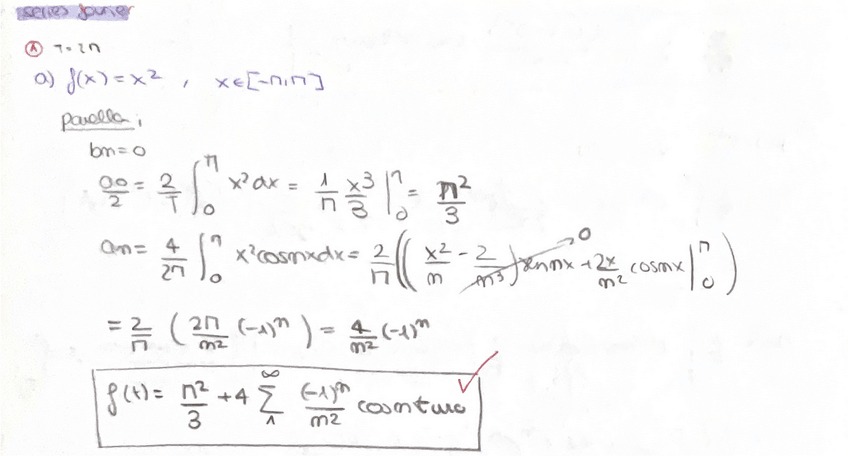 series fourier
A T=2π
a) f(x)=x² , x∈[-π,π]
Parella;
bn=0
a0/2 = 2/T ∫₀^π x²dx = 1/π x³/3 |₀^π = π²/3
an= 4/2π ∫₀^π x²cosnxdx = 2/π ((x²/n - 2/n³) sennx + 2x/n² cosnx |₀^π) →0
= 2/π (2π/n² (-1)ⁿ) = 4/n² (-1)ⁿ
f(t)= π²/3 +4 ∑₁^∞ (-1)ⁿ/n² cosnt